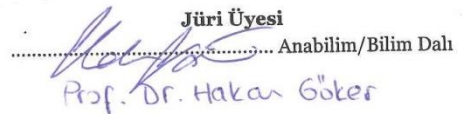 Jüri Üyesi
........................................ Anabilim/Bilim Dalı
Prof. Dr. Hakan Göker